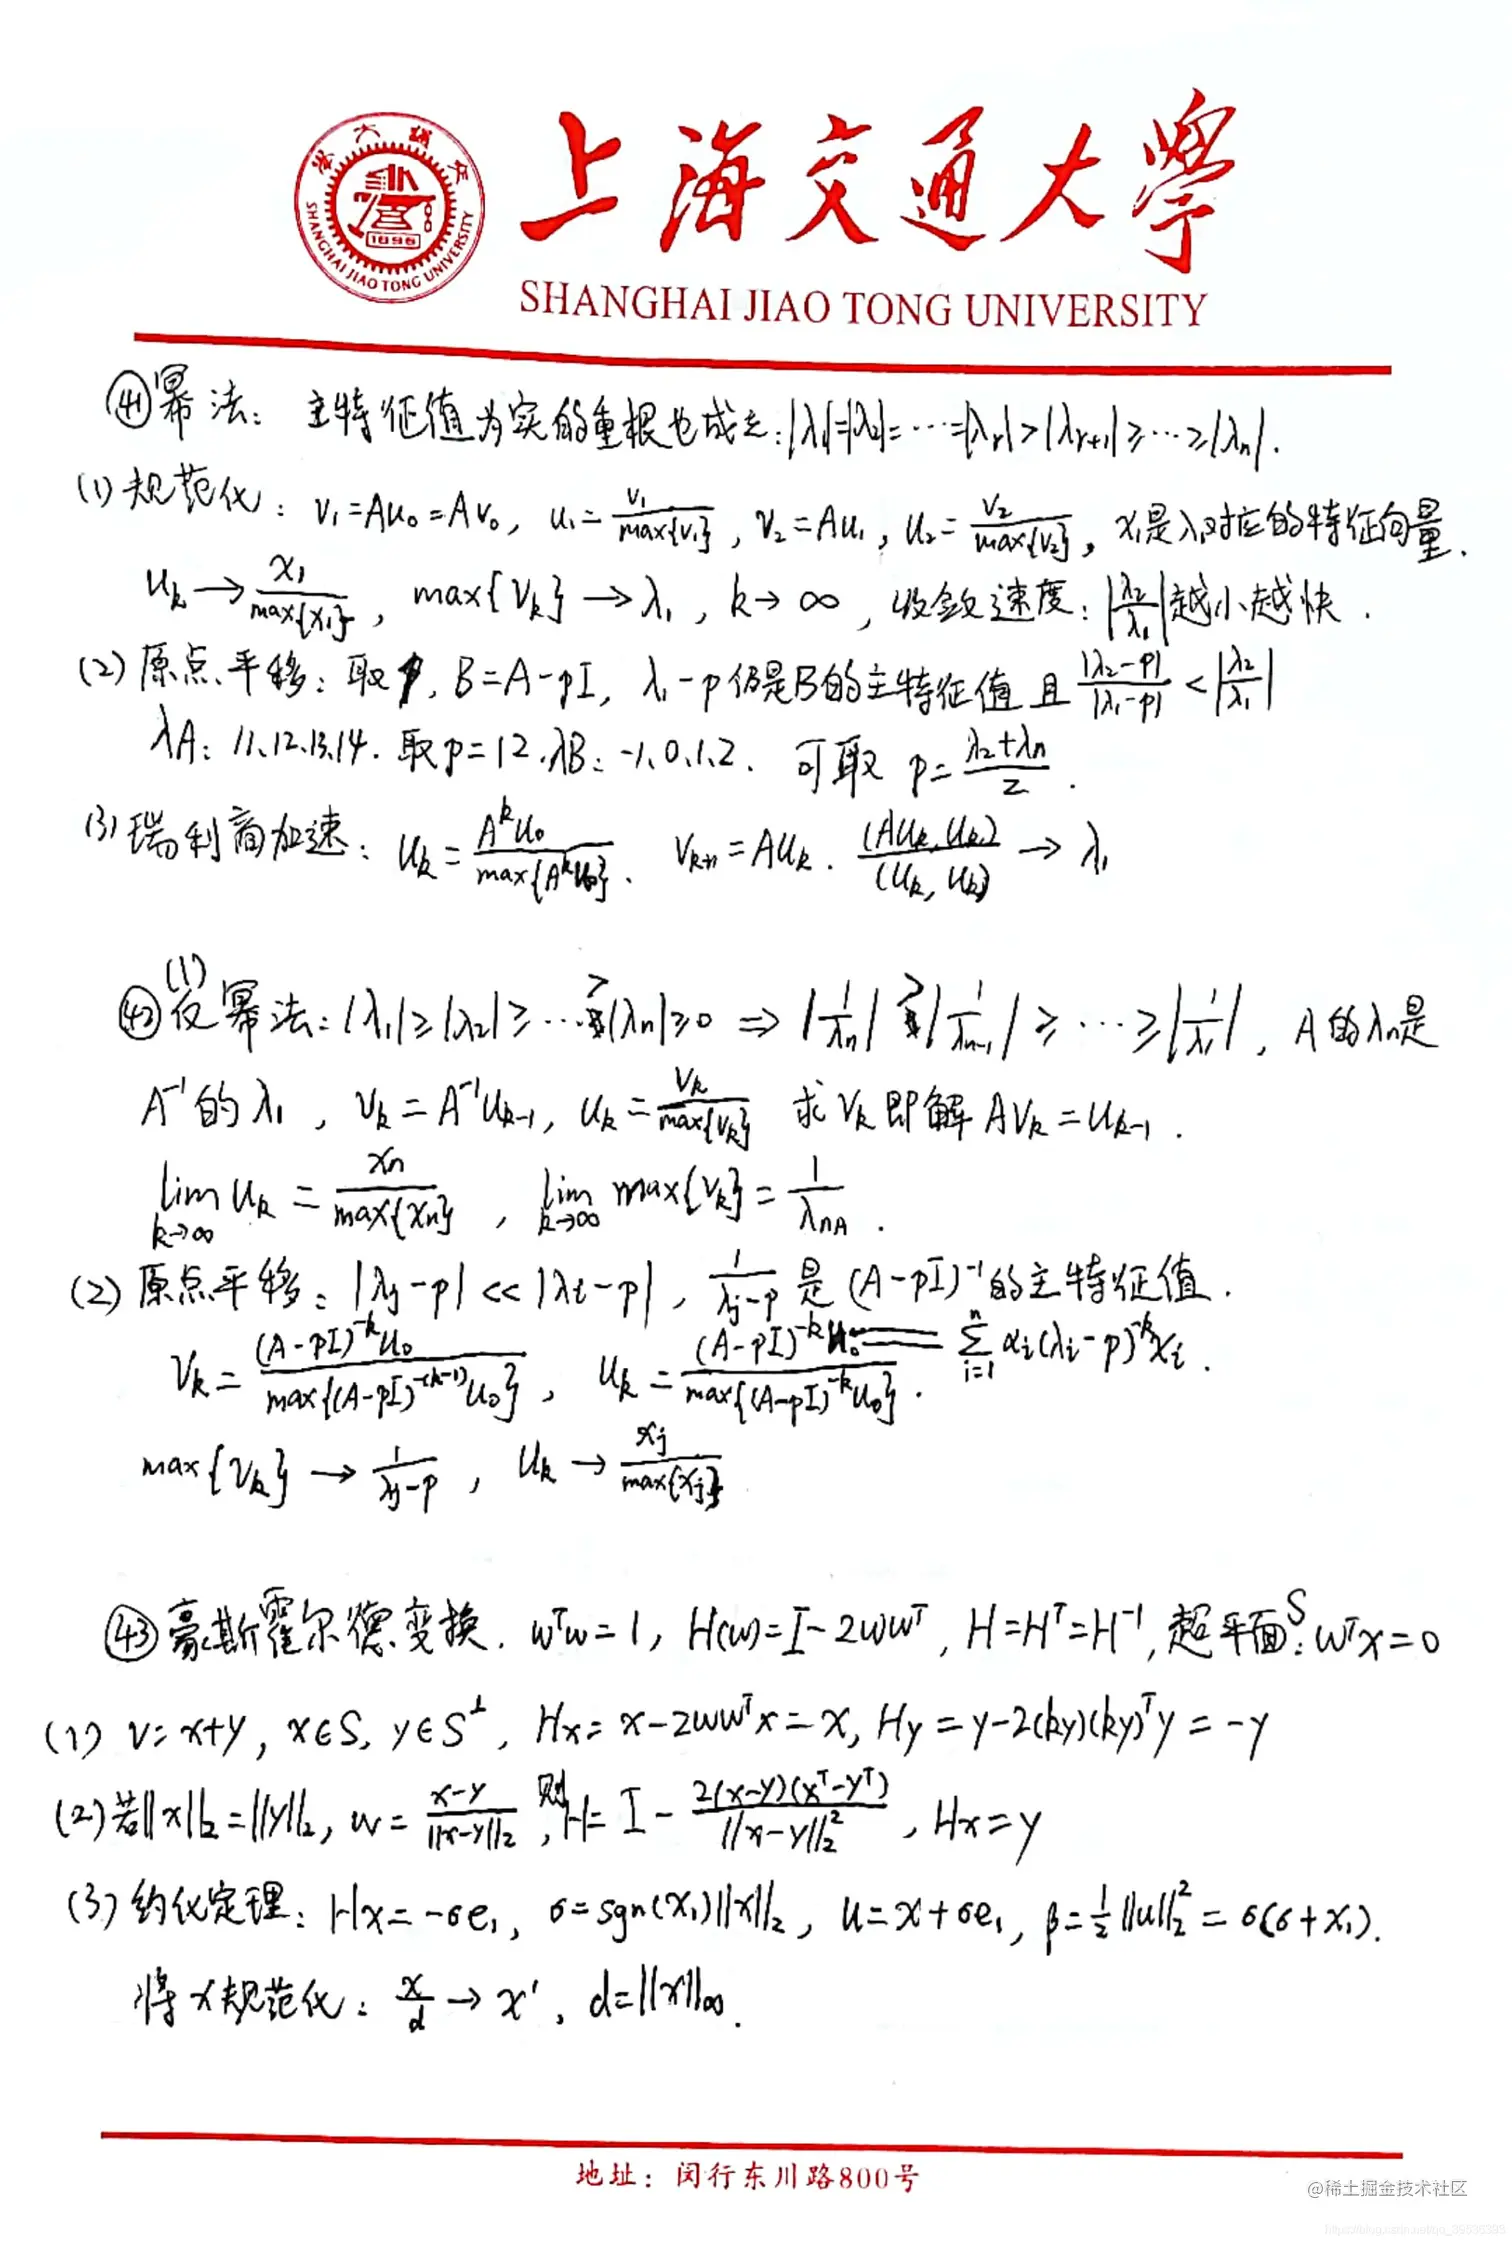 上海交通大學
SHANGHAI JIAO TONG UNIVERSITY
SHANGHAI JIAO TONG UNIVERSITY
1896
㊶幂法: 主特征值为实的重根也成立: |λ₁|=|λ₂|=⋯=|λr|>|λr+1|≥⋯≥|λn|.
(1)规范化: v₁=Au₀=Av₀, u₁=v₁/max{v₁}, v₂=Au₁, u₂=v₂/max{v₂}, x₁是λ₁对应的特征向量.
uk→x₁/max{x₁}, max{vk}→λ₁, k→∞, 收敛速度: |λ₂/λ₁|越小越快.
(2)原点平移: 取p, B=A-pI, λ₁-p仍是B的主特征值且|λ₂-p|/|λ₁-p|<|λ₂/λ₁|
λA: 11、12、13、14. 取p=12. λB: -1、0、1、2. 可取 p=(λ₂+λn)/2.
(3)瑞利商加速: uk=A^k u₀/max{A^k u₀}. vk+1=Auk. (Auk, uk)/(uk, uk)→λ₁
㊷(1)反幂法: |λ₁|≥|λ₂|≥⋯>|λn|≥0 ⇒ |1/λn|>|1/λn-1|≥⋯≥|1/λ₁|, A的λn是
A⁻¹的λ₁, vk=A⁻¹uk-1, uk=vk/max{vk} 求vk即解Avk=uk-1.
lim k→∞ uk=xn/max{xn}, lim k→∞ max{vk}=1/λnA.
(2)原点平移: |λj-p|<<|λi-p|, 1/(λj-p)是(A-pI)⁻¹的主特征值.
vk=(A-pI)^-k u₀/max{(A-pI)^-(k-1) u₀}, uk=(A-pI)^-k u₀/max{(A-pI)^-k u₀}. = Σ i=1 n αi(λi-p)^-k xi.
max{vk}→1/(λj-p), uk→xj/max{xj}
㊸豪斯霍尔德变换. wᵀw=1, H(w)=I-2wwᵀ, H=Hᵀ=H⁻¹, 超平面S: wᵀx=0
(1) v=x+y, x∈S, y∈S⊥, Hx=x-2wwᵀx=x, Hy=y-2(ky)(ky)ᵀy=-y
(2)若||x||₂=||y||₂, w=(x-y)/||x-y||₂, 则H=I-2(x-y)(xᵀ-yᵀ)/||x-y||₂², Hx=y
(3)约化定理: Hx=-σe₁, σ=sgn(x₁)||x||₂, u=x+σe₁, β=½||u||₂²=σ(σ+x₁).
将x规范化: x/d→x′, d=||x||∞.
地址：闵行东川路800号
@稀土掘金技术社区